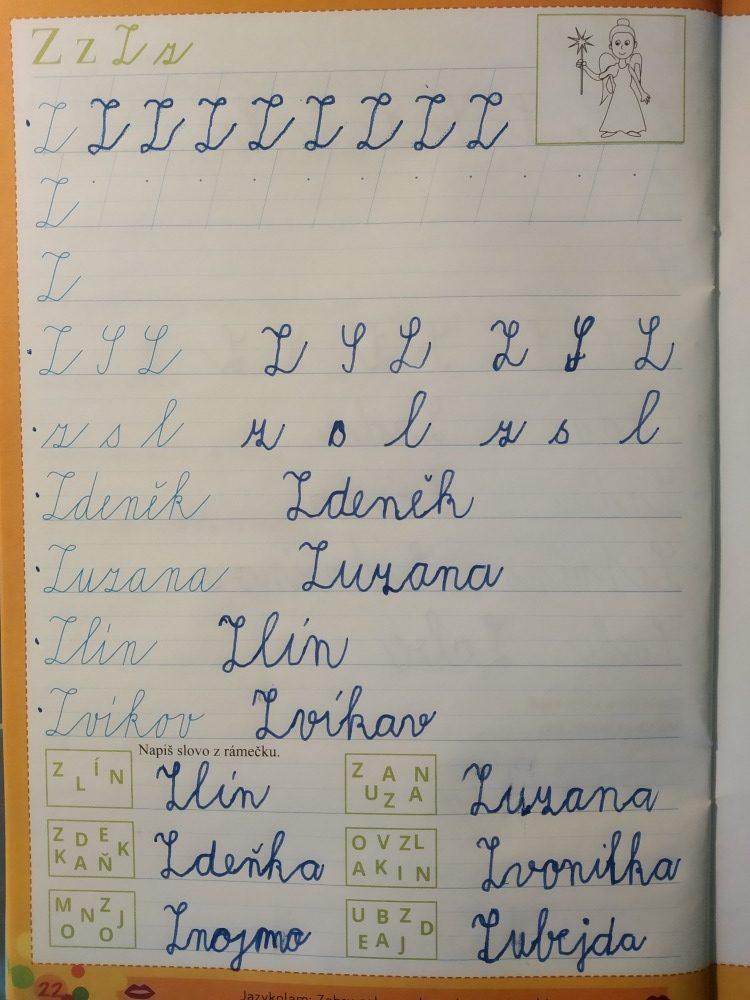 Z z Z z
Z Z Z Z Z Z Z Z Z
Z
Z
Z S L Z S L Z S L
z s l z s l z s l
Zdeněk Zdeněk
Zuzana Zuzana
Zlín Zlín
Zvíkov Zvíkov
Napiš slovo z rámečku.
Z L Í N Zlín
Z A N U Z A Zuzana
Z D E K K A Ň Zdeňka
O V Z L A K I N Zvonilka
M N Z J O O Znojmo
U B Z D E A J Zubejda
22
Jazykolam: